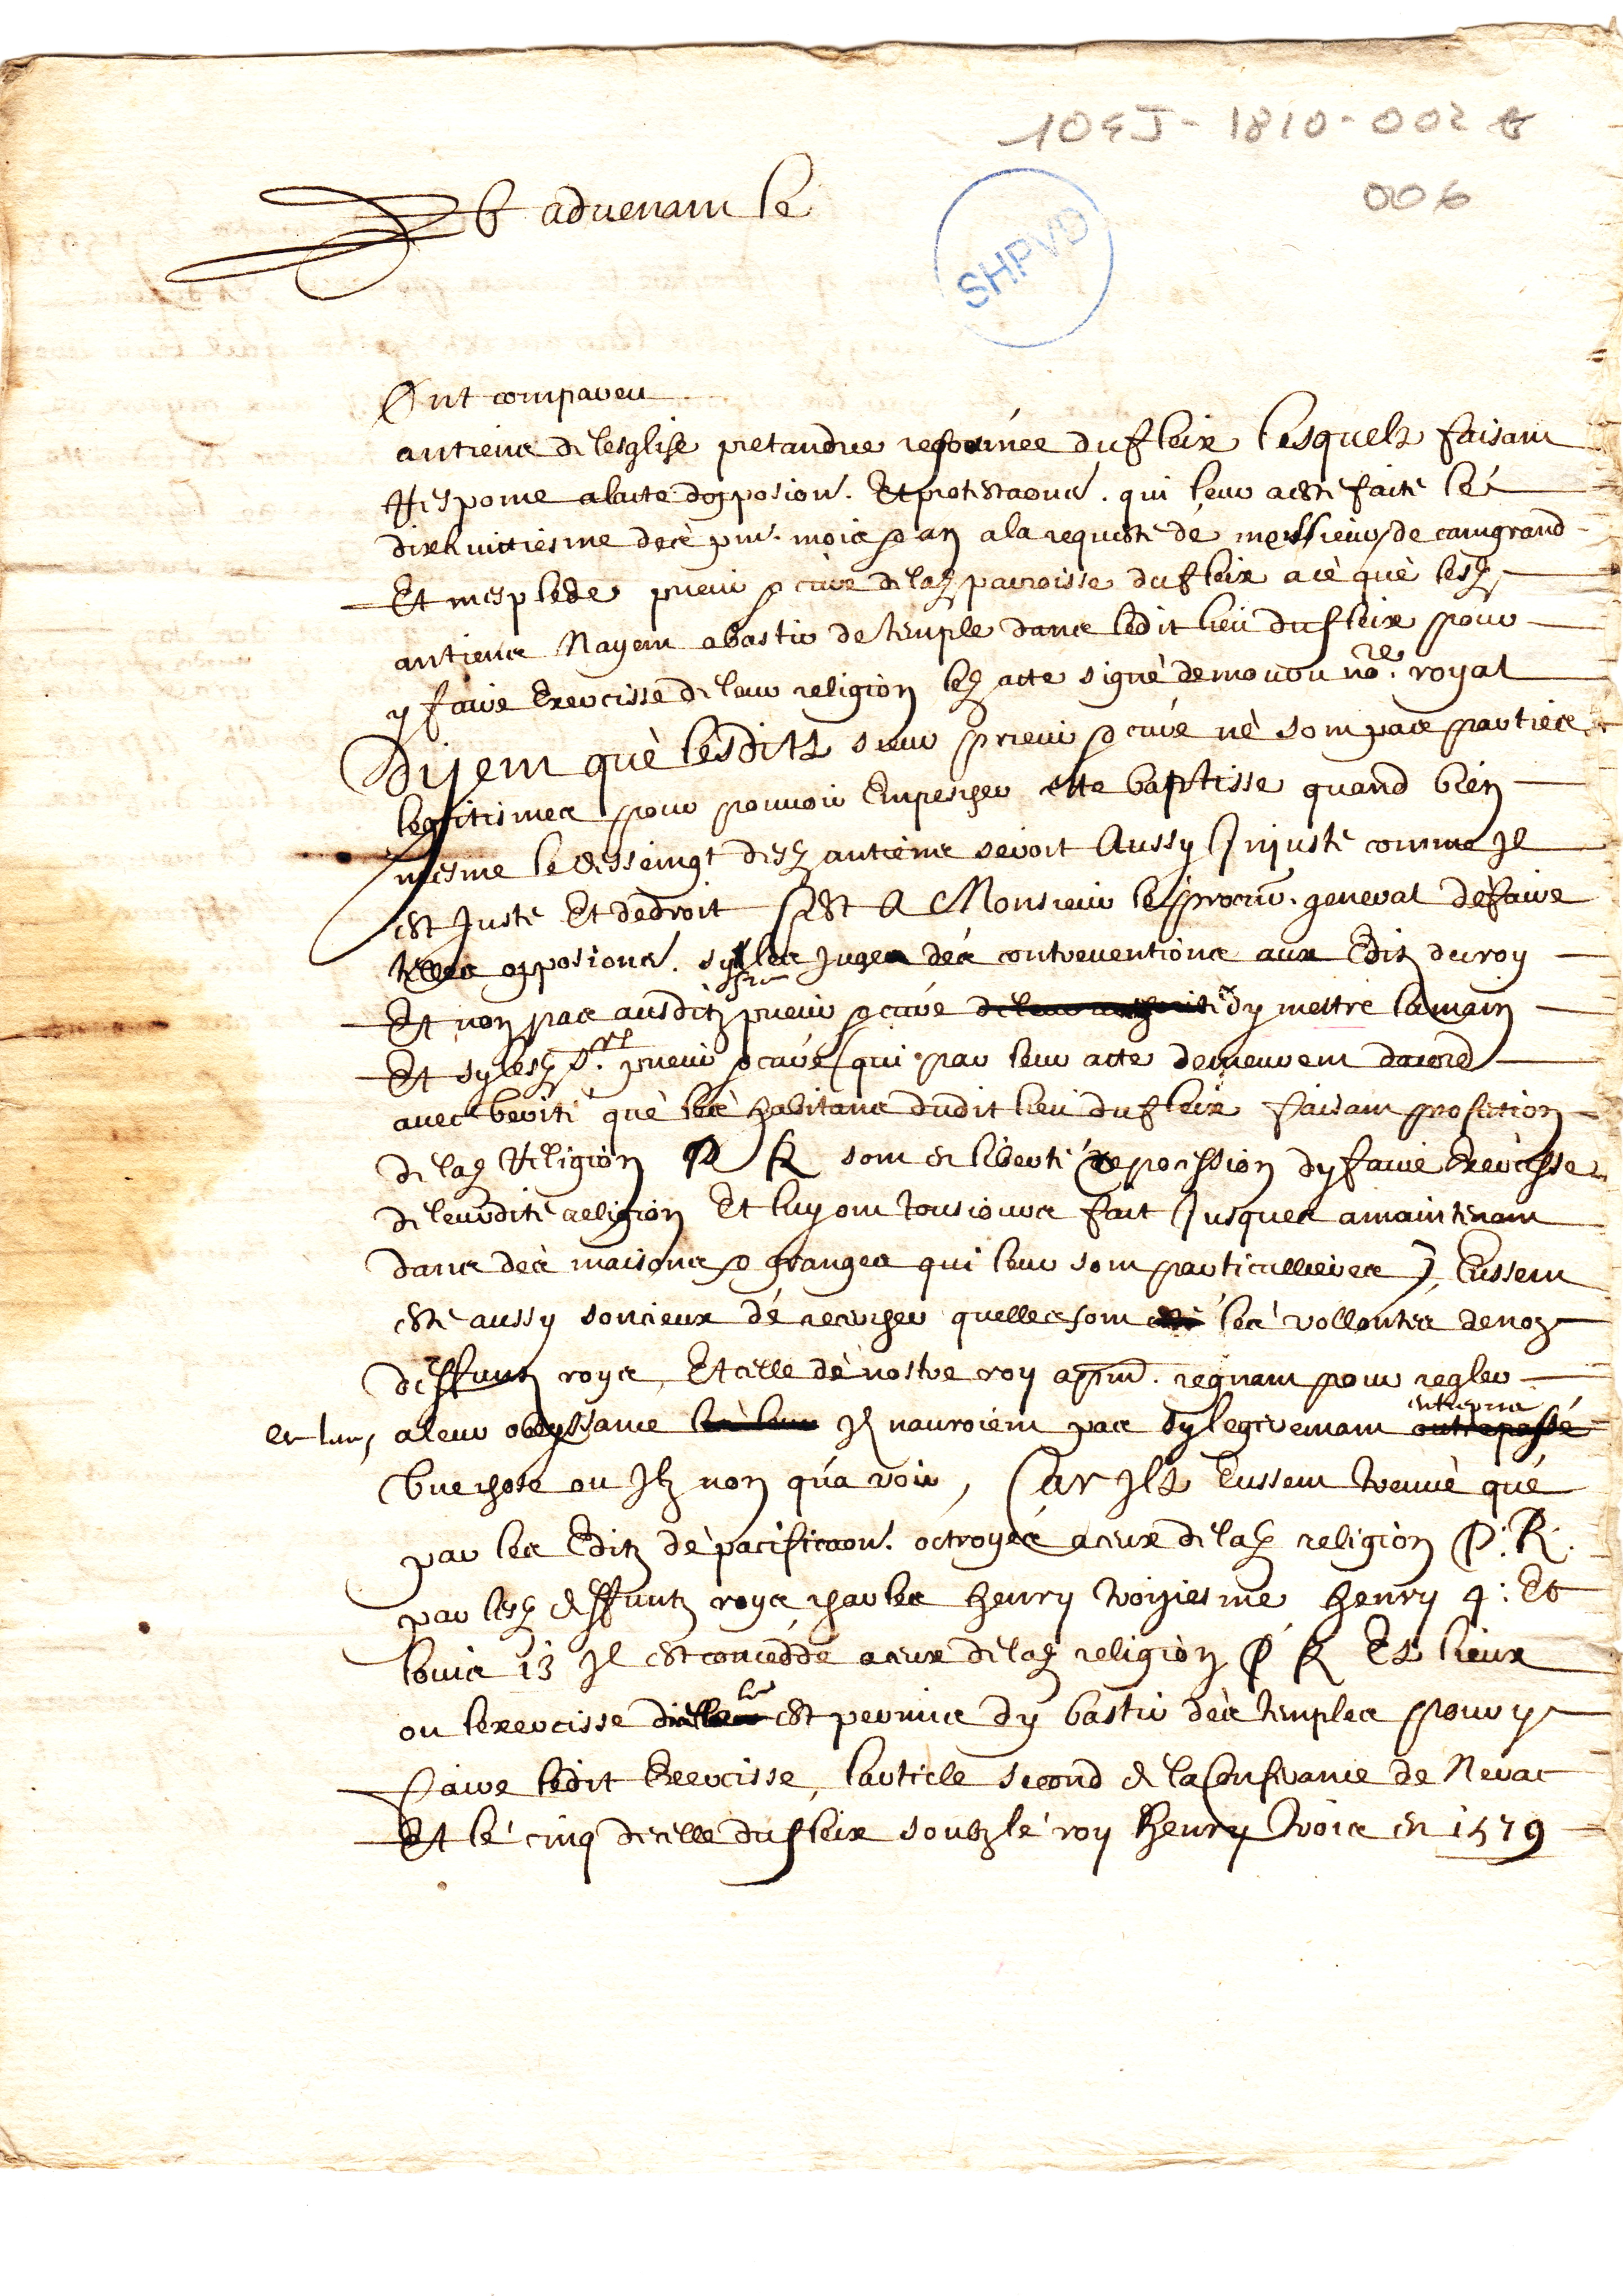 104J-1810-002 B
006
SHPVD
Et advenant le
Ont compareu
antiens de lesglise pretandue reformée du fleix lesquels faisant
Responce a lacte dopposion. Et protestaons. qui leur a esté faite le
dixhuittiesme de ce pnt. mois & an a la requeste de messieurs de camgrand
Et mesplede prieur & curé de lad parroisse du fleix a ce que lesd
antiens Nayent a bastir de temple dans ledit lieu du fleix pour
y faire Exercisse de leur religion led acte signé de mouru nore. royal
Disent que lesdits sieur prieur & curé ne sont pas parties
legitimes pour pouvoir Empescher ette baptisse quand bien
mesme le desseingt desd antiens seroit Aussy Injuste comme Il
est Juste Et de droit Cest A Monsieur le procur. general de faire
telles opposions. sy les juges des contreventions aux Edits du roy
Et non pas ausdits srs prieur & curé de leur authorité dy mettre la main
Et sy lesd srs. prieur & curé (qui par leur acte demeurent daccord
avec verité que les habitans dudit lieu du fleix faisant profession
de lad Religion P R sont en liberté & possession dy faire Exercisse
de leurdite religion Et luy ont tousiours fait Jusques a maintenant
dans des maisons & granges qui leur sont particullieres) Eussent
esté aussy soucieux de recercher quelles sont les vollontés de noz
deffuntz roys, Et celle de nostre roy a pnt. regnant pour regler
et leur, a leur obeyssance Il nauroient pas sy legerement entrepris outrepassé
une chose ou Ilz non qu'a voir, Car Ils Eussent treuvé que
par les Edits de pacificaon. octroyés a ceux de lad religion P. R.
par lesd deffuntz roys charles henry troiziesme henry 4: Et
louis 13 Il est concedde a ceux de lad religion P R Es lieux
ou lexercisse est permis dy bastir des temples pour y
faire ledit Exercisse, larticle second de la Conferance de Nerac
Et le cinq de celle du fleix soubz le roy henry trois en 1579